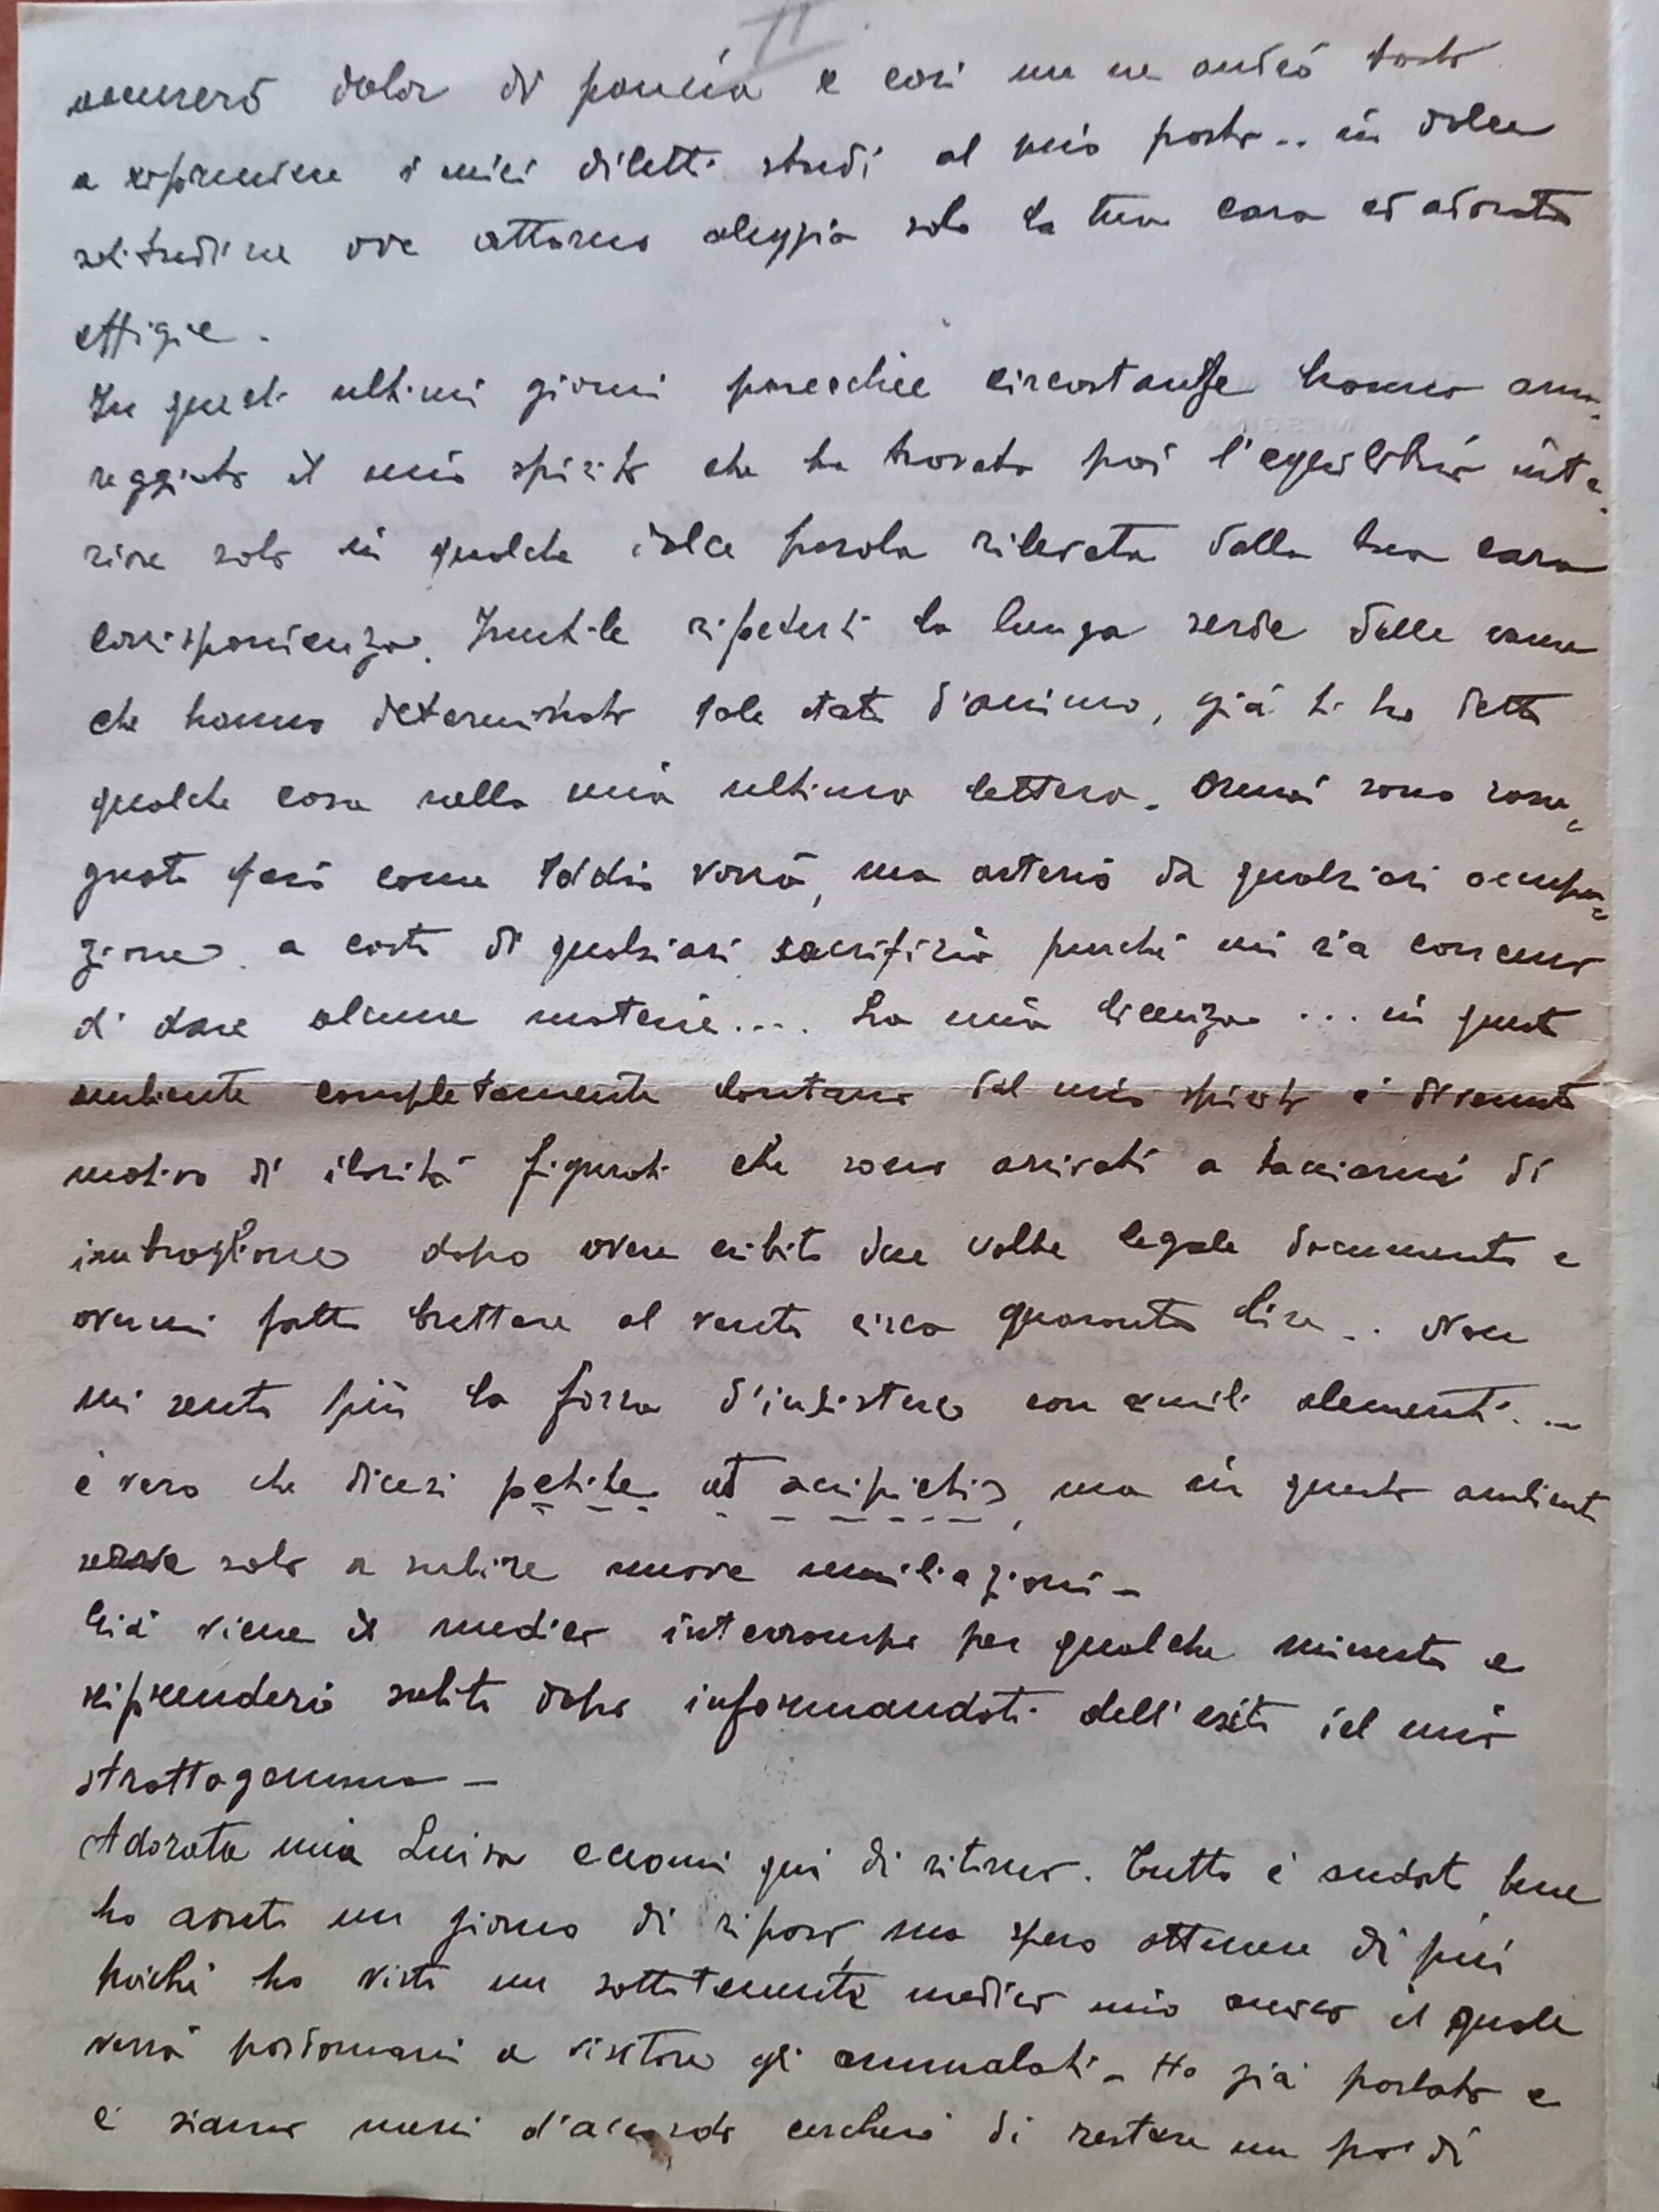 II
accuserò dolor di pancia e così me ne andrò tosto
a riprendere i miei diletti studi al mio posto.. in dolce
solitudine ove attorno aleggia solo la tua cara ed adorata
effigie.
In questi ultimi giorni parecchie circostanze hanno ama=
reggiato il mio spirito che ha trovato poi l'equilibrio inte=
riore solo in qualche dolce parola rilevata dalla tua cara
corrispondenza. Inutile ripeterti la lunga serie delle cause
che hanno determinato tale stato d'animo, già ti ho detto
qualche cosa nella mia ultima lettera. Ormai sono rasse=
gnato farò come Iddio vorrà, ma asterrò da qualsiasi occupa=
zione a costo di qualsiasi sacrifizio purché mi sia concesso
di dare alcune materie.... La mia licenza ... in questo
ambiente completamente lontano dal mio spirito è divenuta
motivo di ilarità figurati che sono arrivati a tacciarmi di
imbroglione dopo avere esibito due volte legale documento e
avermi fatto buttare al vento circa quaranta lire.. Non
mi sento più la forza d'insistere con simili elementi...
è vero che dicesi petite et accipietis, ma in questo ambiente
serve solo a subire nuove umiliazioni -
Già viene il medico interrompo per qualche minuto e
riprenderò subito dopo informandoti dell'esito del mio
strattagemma -
Adorata mia Luisa eccomi qui di ritorno. Tutto è andato bene
ho avuto un giorno di riposo, ma spero ottenere di più
poiché ho visto un sottotenente medico mio amico il quale
verrà posdomani a visitare gli ammalati - Ho già parlato e
ci siamo messi d'accordo cercherò di restare un po' di